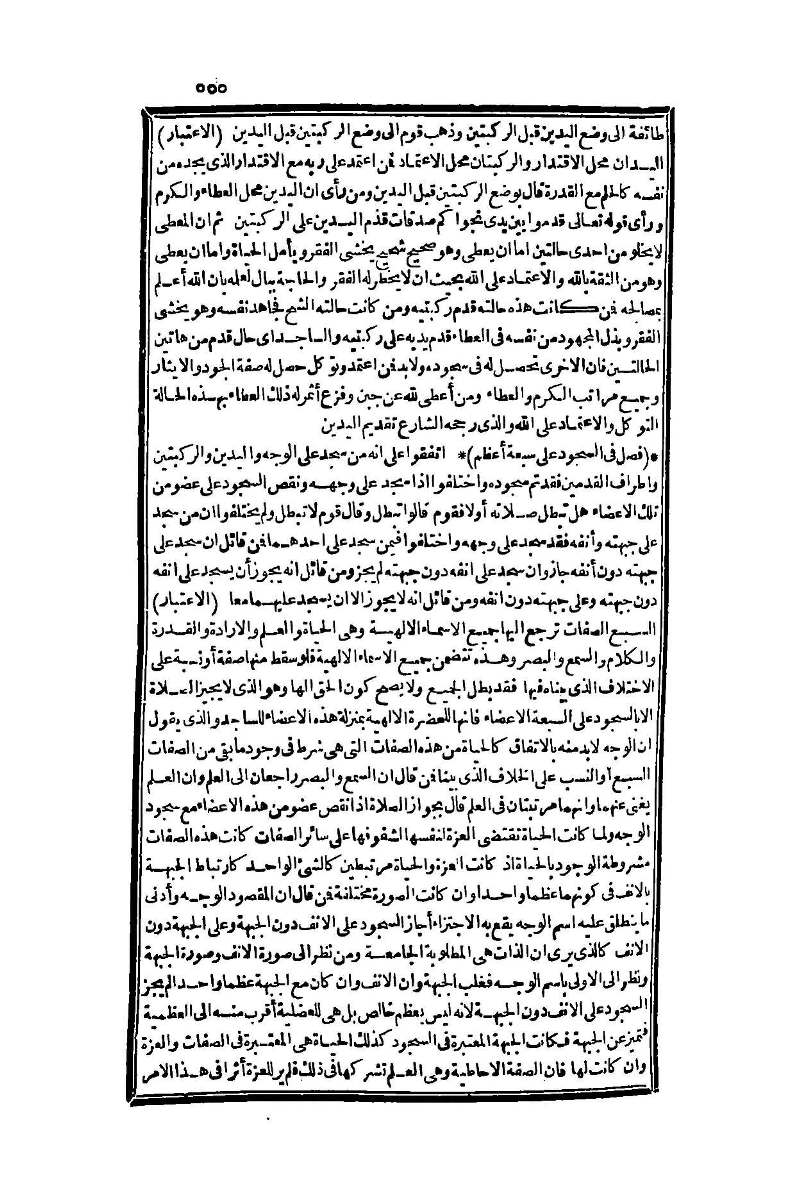 ٥٥٥
طائفة الى وضع اليدين قبل الركبتين وذهب قوم الى وضع الركبتين قبل اليدين (الاعتبار)
اليدان محل الاقتدار والركبتان محل الاعتماد فن اعتمد على ربه مع الاقتدار الذى يجده من
نفسه كالحلم مع القدرة قال بوضع الركبتين قبل اليدين ومن رأى ان اليدين محل العطاء والكرم
ورأى قوله تعالى قدموا بين يدى نجوا كم صدقات قدم اليدين على الركبتين ثم ان المعطى
لا يخلو من احدى حالتين اما ان يعطى وهو صحيح شحيح يخشى الفقر ويأمل الحياة واما ان يعطى
وهو من الثقة بالله والاعتماد على الله بحيث ان لا يخطر له الفقر والحاجة ببال لعلمه بان الله أعلم
بمصالحه فن كانت هذه حالته قدم ركبتيه ومن كانت حالته الشح فجاهد نفسه وهو يخشى
الفقر وبذل المجهود من نفسه فى العطاء قدم يديه على ركبتيه والساجد اى حال قدم من هاتين
الحالتين فان الاخرى تحصل له فى سجوده ولابد فن اعتمد وتوكل حصل له صفة الجود والايثار
وجميع مراتب الكرم والعطاء ومن أعطى لله عن جبن وفزع أثمر له ذلك العطاء بهذه الحالة
التوكل والاعتماد على الله والذى رجحه الشارع تقديم اليدين
*(فصل فى السجود على سبعة أعظم)* اتفقوا على انه من سجد على الوجه واليدين والركبتين
واطراف القدمين فقد تم سجوده واختلفوا اذا سجد على وجهه ونقص السجود على عضو من
تلك الاعضاء هل تبطل صلاته أولا فقوم قالوا تبطل وقال قوم لا تبطل ولم يختلفوا ان من سجد
على جبهته وأنفه فقد سجد على وجهه واختلفوا فيمن سجد على احدهما فن قائل ان سجد على
جبهته دون أنفه جاز وان سجد على انفه دون جبهته لم يجز ومن قائل انه يجوز أن يسجد على انفه
دون جبهته وعلى جبهته دون انفه ومن قائل انه لا يجوز الا ان يسجد عليهما معا (الاعتبار)
السبع الصفات ترجع اليها جميع الاسماء الالهية وهى الحياة والعلم والارادة والقدرة
والكلام والسمع والبصر وهذه تتضمن جميع الاسماء الالهية فلو سقط منها صفة أو نسبة على
الاختلاف الذى بيناه فيها فقد بطل الجميع ولا يصح كون الحق الها وهو الذى لا يجيز الصلاة
الا بالسجود على السبعة الاعضاء فانها للحضرة الالهية بمنزلة هذه الاعضاء للساجد والذى يقول
ان الوجه لابد منه بالاتفاق كالحياة من هذه الصفات التى هى شرط فى وجود ما بقى من الصفات
السبع أو النسب على الخلاف الذى بينا فن قال ان السمع والبصر راجعان الى العلم وان العلم
يغنى عنهما وانهما مرتبتان فى العلم قال بجواز الصلاة اذا نقص عضو من هذه الاعضاء مع سجود
الوجه ولما كانت الحياة تقتضى العزة لنفسها الشفوفها على سائر الصفات كانت هذه الصفات
مشروطة الوجود بالحياة اذ كانت العزة والحياة مرتبطين كالشئ الواحد كارتباط الجبهة
بالانف فى كونهما عظما واحدا وان كانت الصورة مختلفة فن قال ان المقصود الوجه وأدنى
ما ينطلق عليه اسم الوجه يقع به الاجتزاء أجاز السجود على الانف دون الجبهة وعلى الجبهة دون
الانف كالذى يرى ان الذات هى المطلوبة الجامعة ومن نظر الى صورة الانف وصورة الجبهة
ونظر الى الاولى باسم الوجه فغلب الجبهة وان الانف وان كان مع الجبهة عظما واحدا لم يجز
السجود على الانف دون الجبهة لانه ليس بعظم خالص بل هى للعضلية أقرب منه الى العظمية
فتميز عن الجبهة فكانت الجبهة المعتبرة فى السجود كذلك الحياة هى المعتبرة فى الصفات والعزة
وان كانت لها فان الصفة الاحاطية وهى العلم تشركها فى ذلك فلم ير للعزة أثرا فى هذا الامر